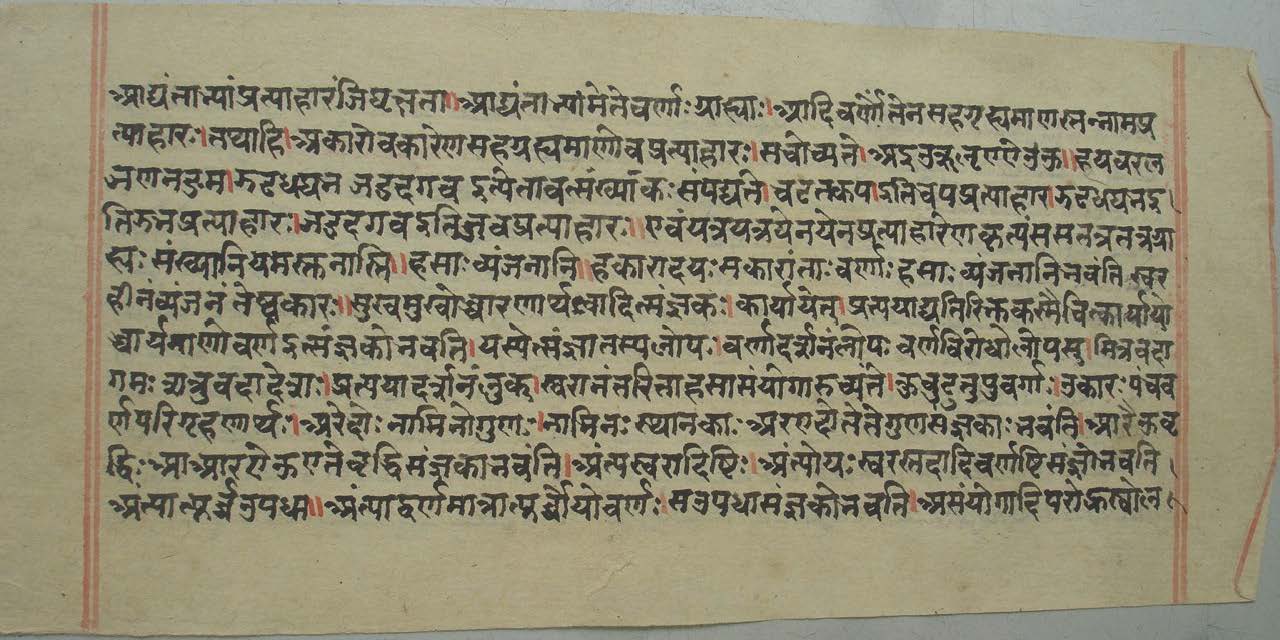 आद्यंताभ्यां प्रत्याहारं जिघृक्षता॥ आद्यंताभ्यामेतेवर्णाः ग्राह्याः। आदिवर्णोंतेनसहगृह्यमाणस्तन्नामप्र
त्याहारः। तथाहि। अकारोवकारेणसहगृह्यमाणोवप्रत्याहारः। सचोच्यते। अइउऋऌएऐओऔ॥ हयवरल
ञणनङम। झढधघभ जडदगब इत्येतावत्संख्याकः संपद्यते। चटतकप। इतिचपप्रत्याहार। झढधघभइ
तिझभप्रत्याहारः। जडदगबइतिजबप्रत्याहारः॥ एवंयत्रयत्रयेनयेनप्रत्याहारेणकृत्यंससतत्रतत्रग्रा
ह्यः संख्यानियमस्तुनास्ति॥ हसाः व्यंजनानि॥ हकारादयः सकारांताः वर्णाः हसाः व्यंजनानिभवंति स्वर
हीनंव्यंजनं तेष्वकारः॥ सुखमुखोच्चारणार्थत्वादित्संज्ञकः। कार्यायेत्। प्रत्ययाद्यतिरिक्तः कस्मैचित्कार्यायो
च्चार्यमाणोवर्णइत्संज्ञकोभवति। यस्येत्संज्ञातस्यलोपः। वर्णादर्शनंलोपः वर्णविरोधोलोपस्तु। मित्रवदा
गमः शत्रुवदादेशः। प्रत्ययादर्शनंलुक्। स्वरानंतरिताहसासंयोगाउच्यंते। कुचुटुतुपुवर्गाः। उकारः पंचव
र्णपरिगृहणार्थः। अरेदो नामिनोगुणः। नामिनः स्थानकाः अरएदोतेतेगुणसंज्ञकाः भवंति। आरैऔवृ
द्धिः आआरऐऔएतेवृद्धिसंज्ञकाभवंति। अंत्यस्वरादिष्टिः। अंत्योयः स्वरस्तदादिवर्णष्टिसंज्ञोभवति
अंत्यात्पूर्वउपधा॥ अंत्याद्वर्णमात्रात्पूर्वोयोवर्णः। सउपधासंज्ञकोभवति। असंयोगादिपरोह्रस्वोल